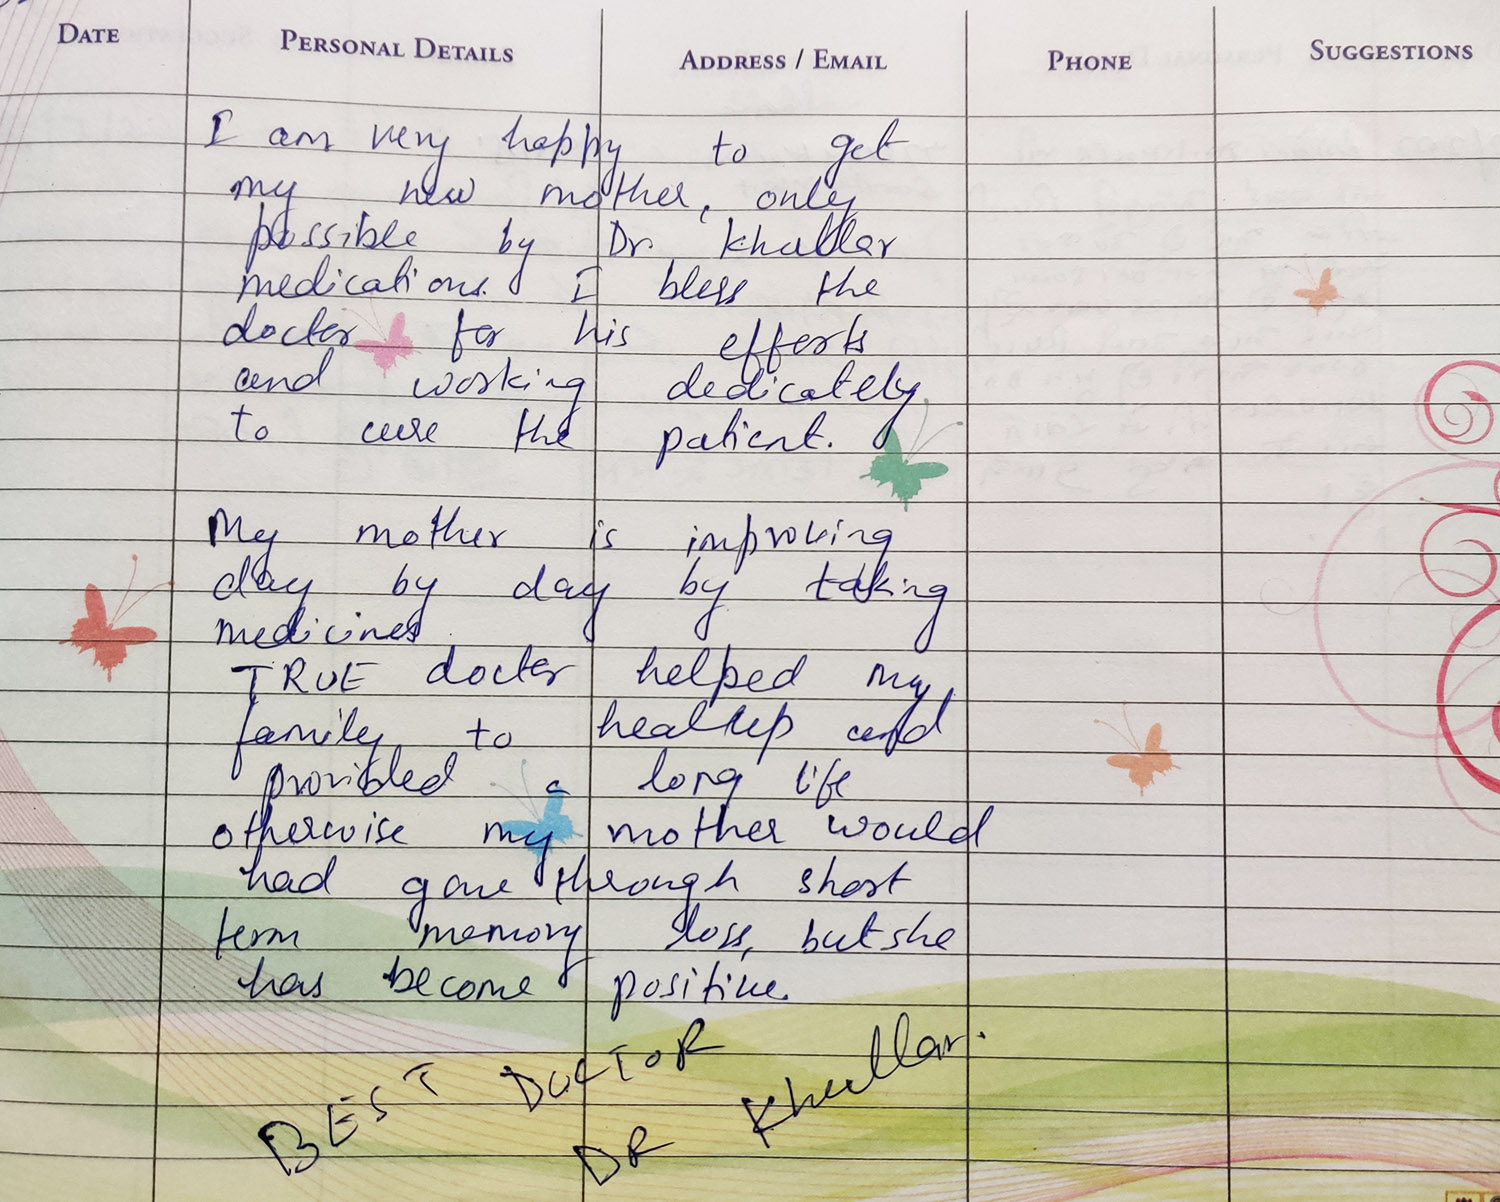 DATE PERSONAL DETAILS ADDRESS / EMAIL PHONE SUGGESTIONS
I am very happy to get
my new mother, only
possible by Dr. Khullar
medications. I bless the
docter for his efforts
and working dedicately
to cure the patient.
My mother is improving
day by day by taking
medicines
TRUE docter helped my
family to healup and
provided a long life
otherwise my mother would
had gone through short
term memory loss, but she
has become positive.
BEST DOCTOR
DR Khullar.